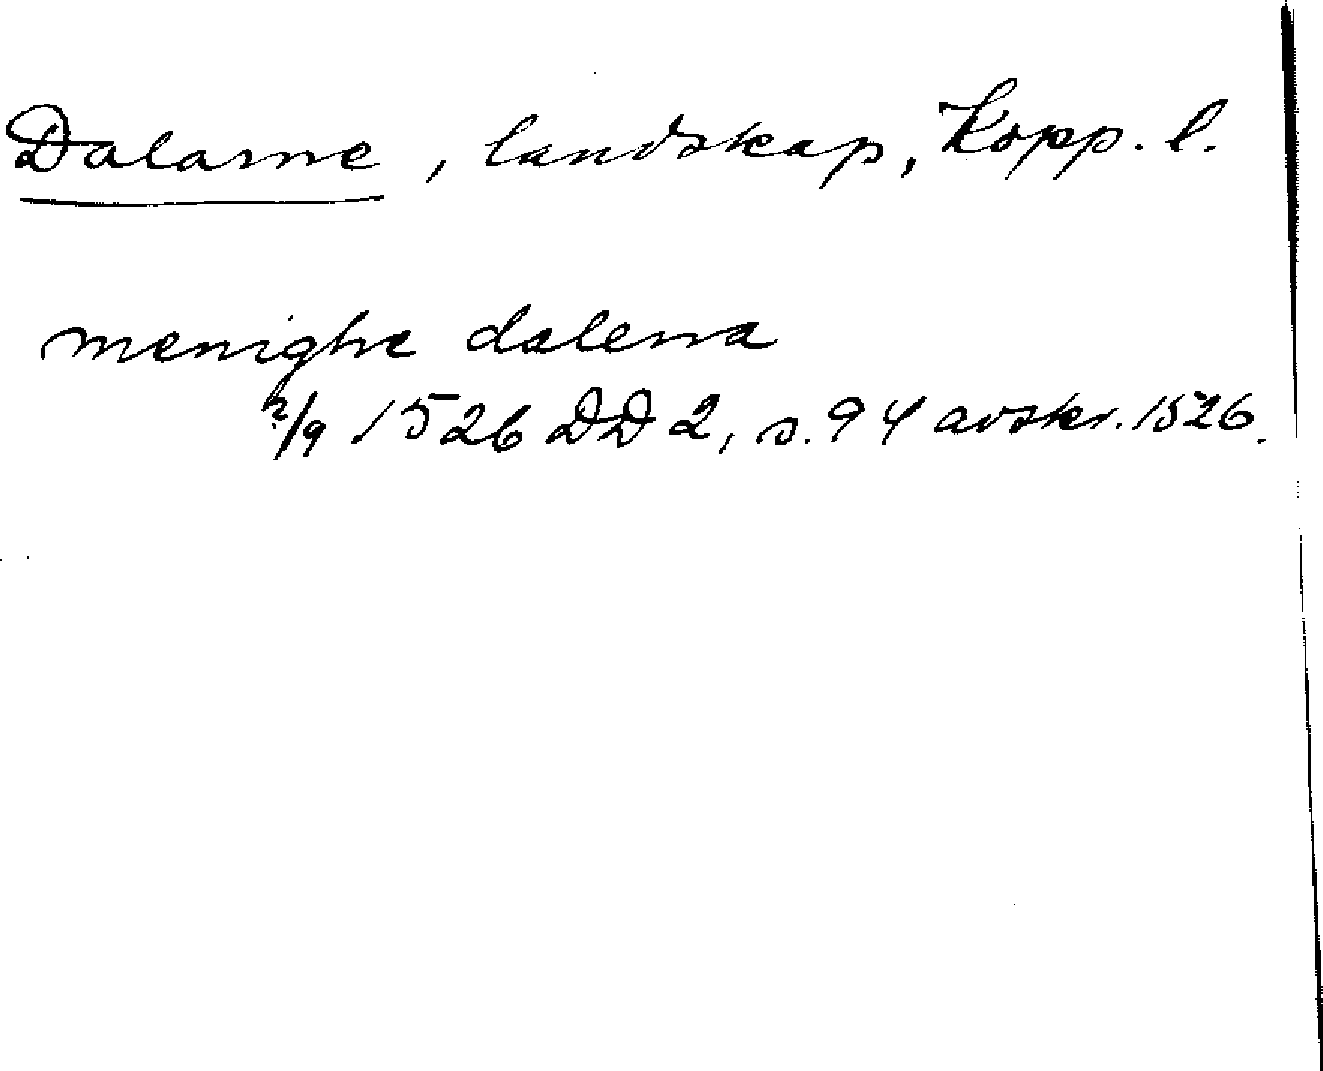 Dalarne, landskap, Kopp. l.
menighe dalena
2/9 1526 DD 2, s. 94 avskr. 1526.